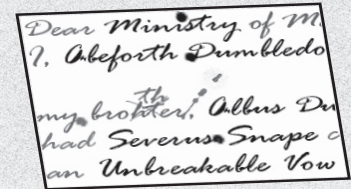 Dear Ministry of M
I, Abeforth Dumbledo
th
my brohter, Albus Du
had Severus Snape
an Unbreakable Vow